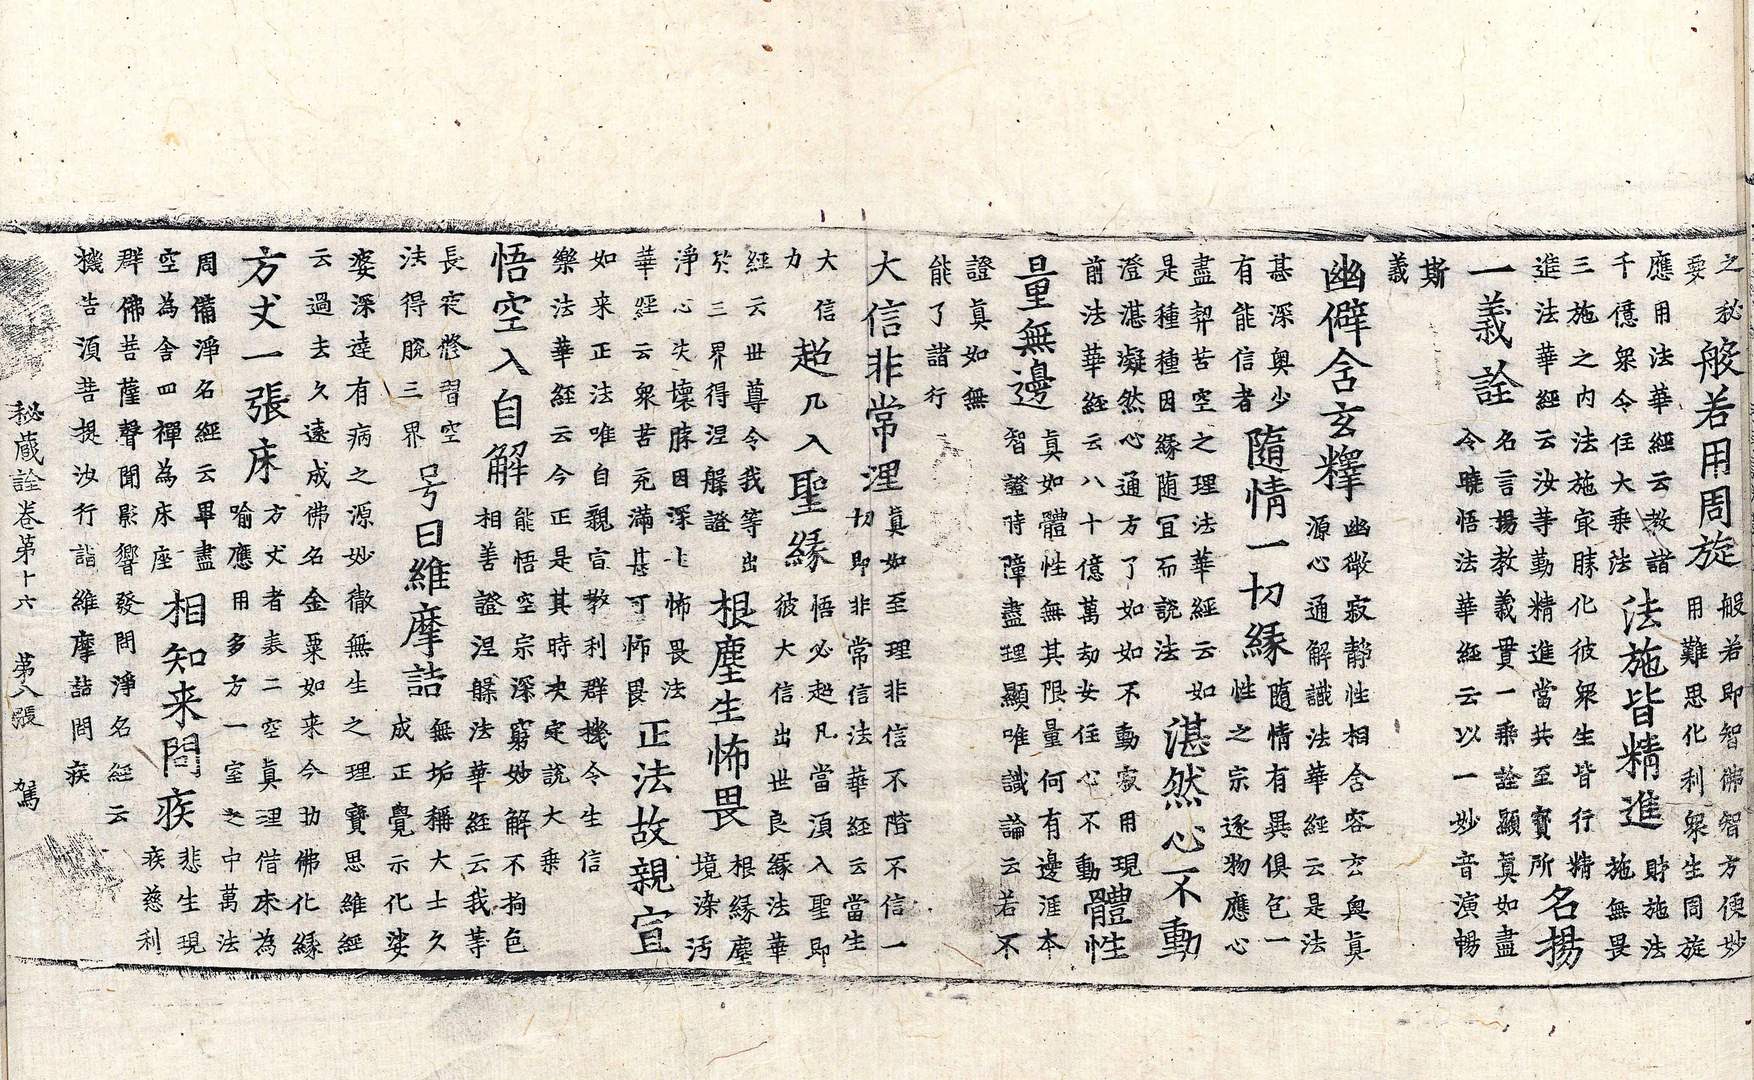 之秘
要
般若用周旋
般若即智佛智方便妙
用難思化利衆生同旋
應用法華經云教諸
千億衆令住大乘法
法施皆精進
財施法
施無畏
三施之内法施㝡勝化彼衆生皆行精
進法華經云汝等勤精進當共至寶所
名揚
一義詮
名言揚教義貫一乘詮顯真如盡
令曉悟法華經云以一妙音演暢
斯
義
幽僻含玄釋
幽微寂靜性相含容玄奥真
源心通解識法華經云是法
甚深奥少
有能信者
隨情一切緣
隨情有異俱包一
性之宗逐物應心
盡契苦空之理法華經云如
是種種因緣随宜而説法
湛然心不動
澄湛凝然心通方了如如不動寂用現
前法華經云八十億萬劫安住心不動
體性
量無邊
真如體性無其限量何有邊涯本
智證時障盡理顯唯識論云若不
證真如無
能了諸行
大信非常理
真如至理非信不階不信一
切即非常信法華經云當生
大信
力
超凡入聖緣
悟必超凡當須入聖即
彼大信出世良緣法華
經云世尊令我等出
於三界得涅槃證
根塵生怖畏
根緣塵
境染汚
淨心失壞勝因深怖畏法
華經云衆苦充滿甚可怖畏
正法故親宣
如来正法唯自親宣敷利群機令生信
樂法華經云今正是其時决定説大乘
悟空入自解
能悟空宗深窮妙解不拘色
相善證涅槃法華經云我等
長夜修習空
法得脱三界
号曰維摩詰
無垢稱大士久
成正覺示化娑
婆深達有病之源妙徹無生之理寶思維經
云過去久遠成佛名金粟如来今助佛化緣
方丈一張床
方丈者表二空真理借床為
喻應用多方一室之中萬法
周備淨名經云畢盡
空為舍四禪為床座
相知来問疾
悲生現
疾慈利
群佛菩薩聲聞影響發問淨名經云
機告須菩提汝行詣維摩詰問疾
秘蔵詮卷第十六 第八張 駕